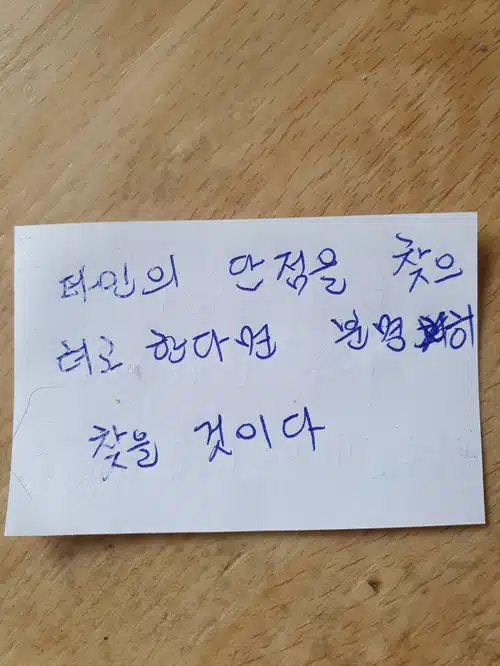 타인의 단점을 찾으
려로 한다면 분명히
찾을 것이다